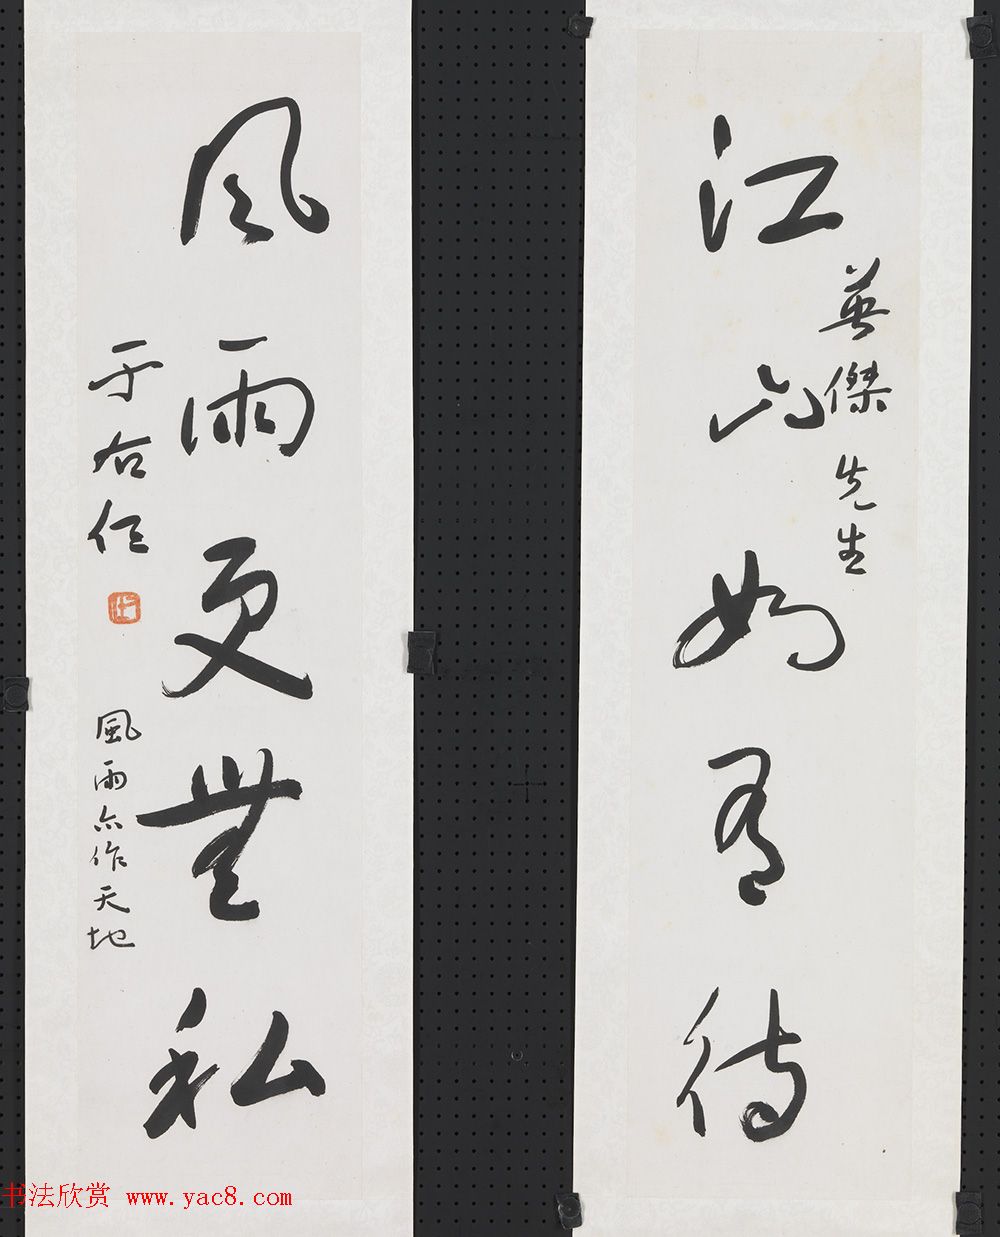 江山如有待
英傑先生
風雨更無私
于右任
風雨亦作天地
书法欣赏 www.yac8.com